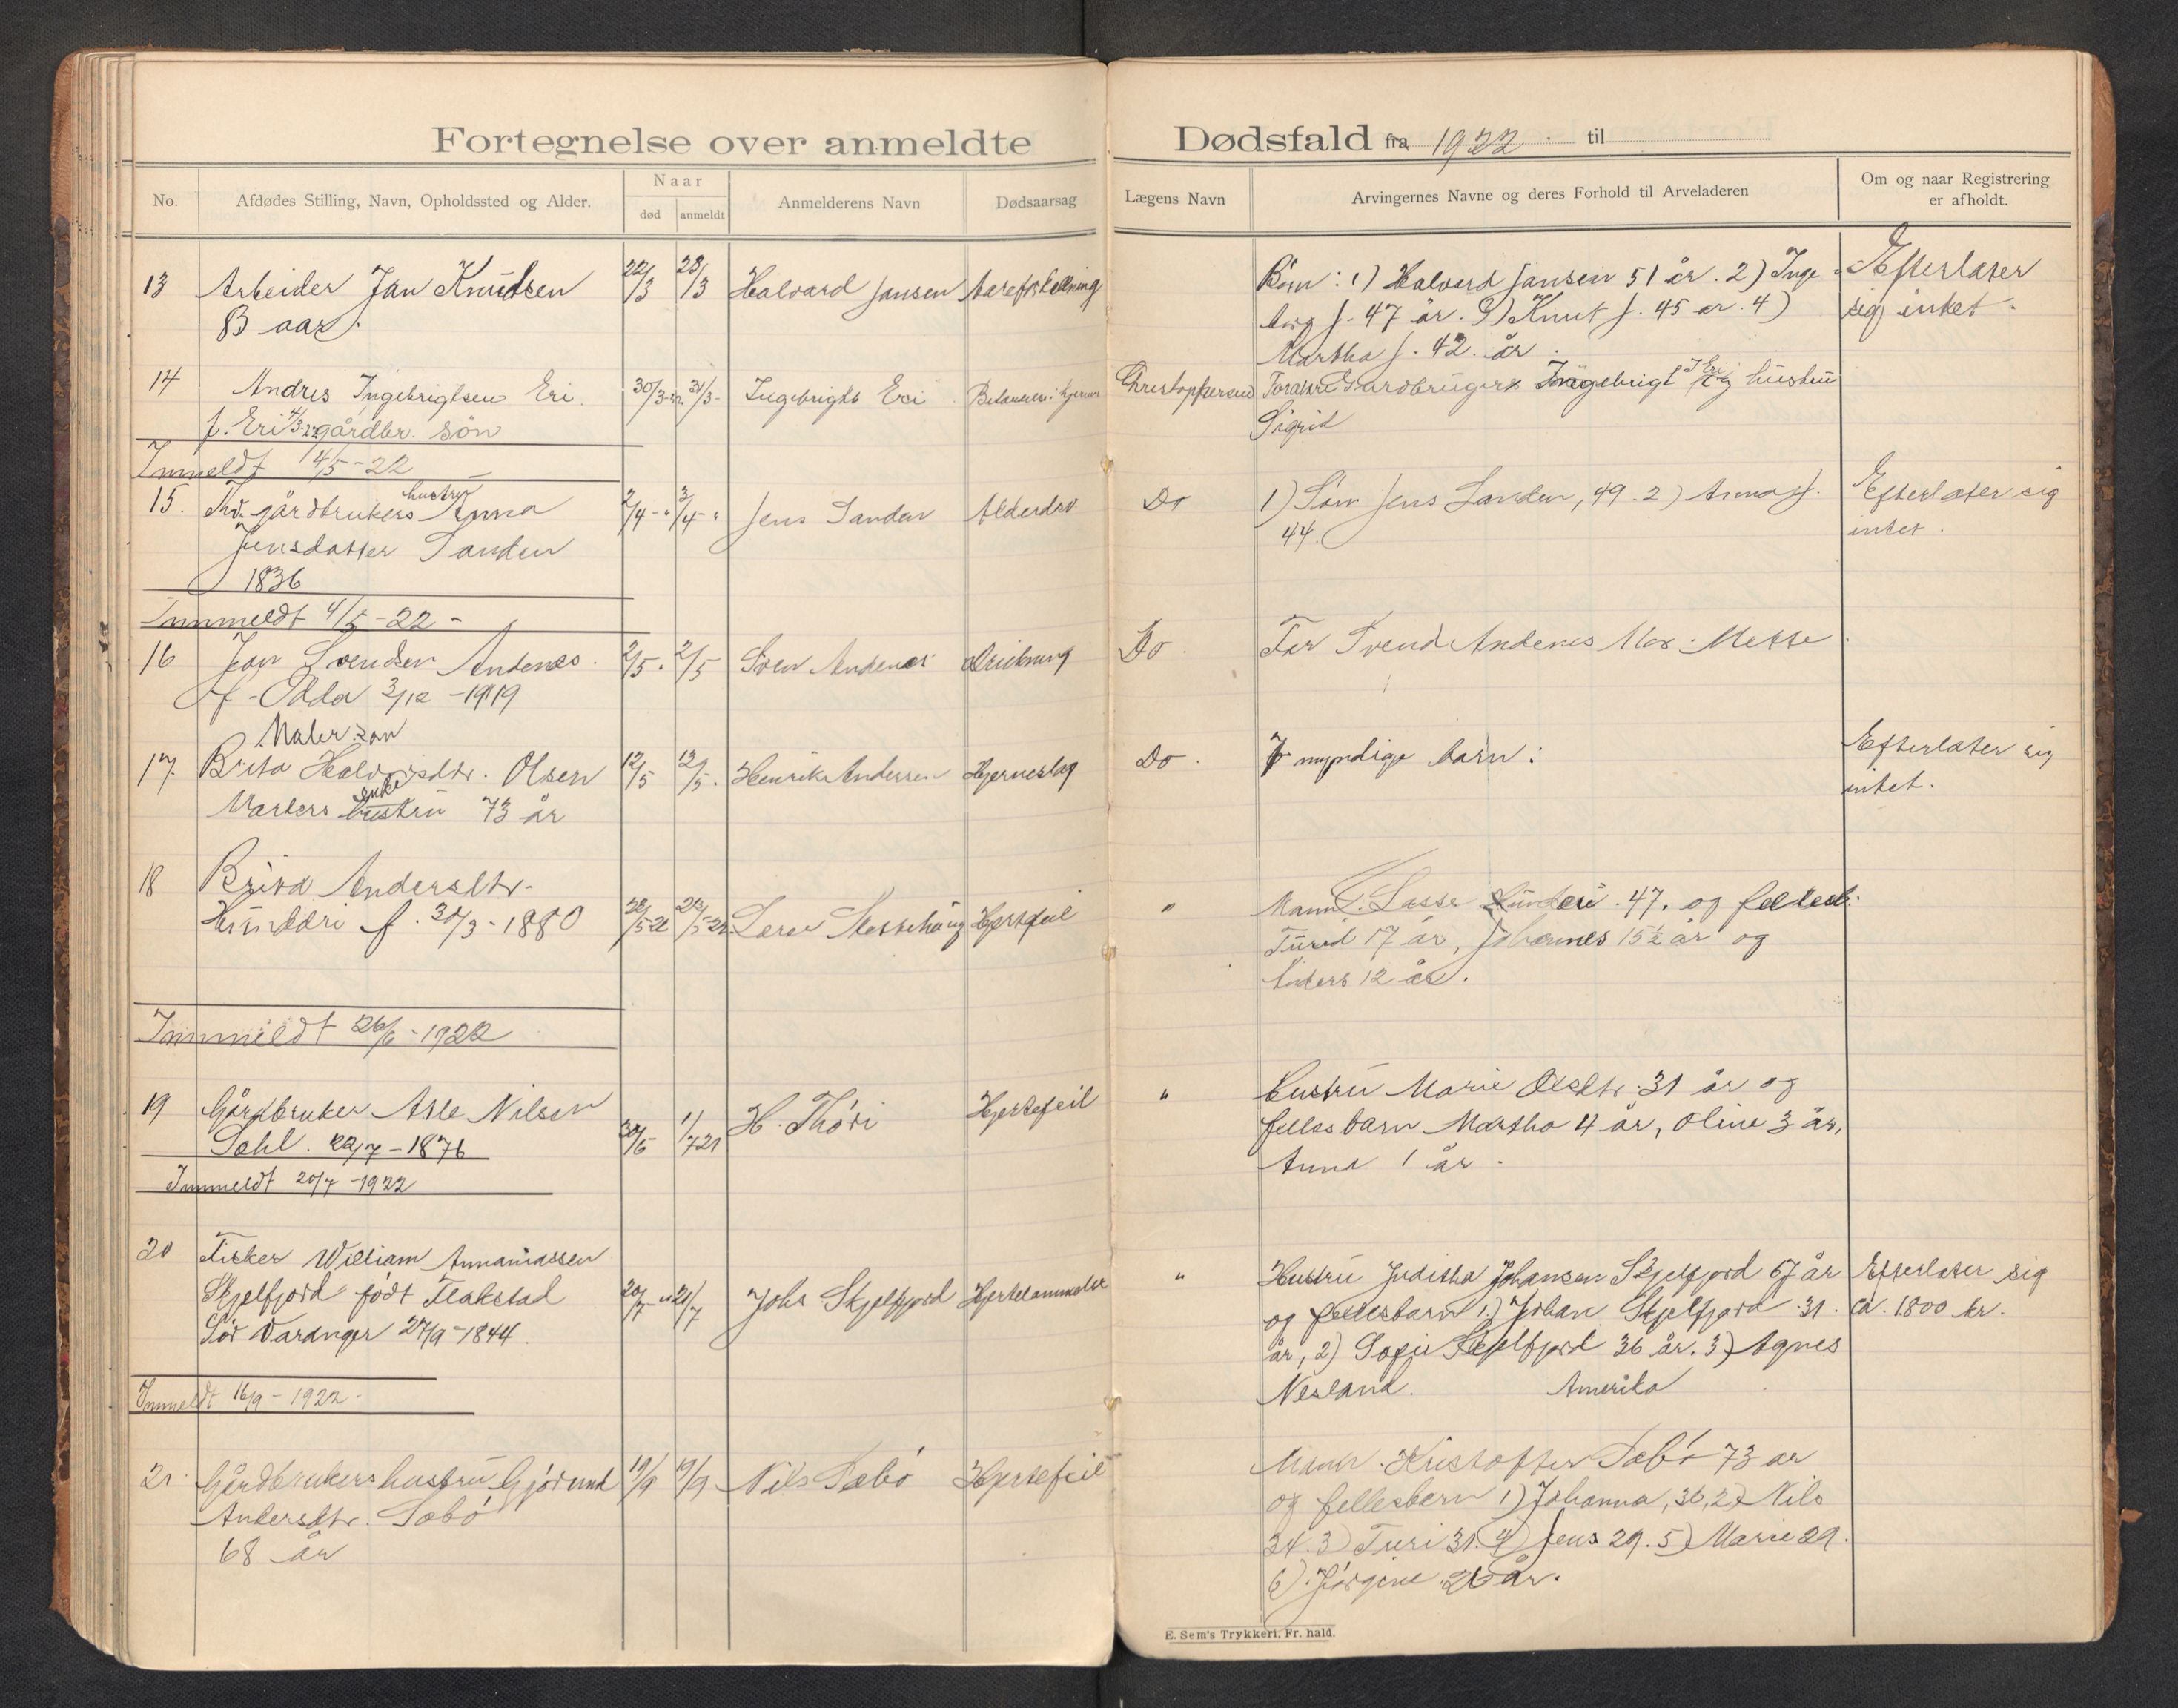 Fortegnelse over anmeldte Dødsfald fra 1922 til
No.
Afdødes Stilling, Navn, Opholdssted og Alder.
Naar
død
anmeldt
Anmelderens Navn
Dødsaarsag
Lægens Navn
Arvingernes Navne og deres Forhold til Arveladeren
Om og naar Registrering
er afholdt.
13 Arbeider Jan Knudsen 22/3 28/3 Halvard Jansen Aareforkalkning
83 aar.
Børn: 1) Halvard Jansen 51 år. 2) Inge
borg J. 47 år. 3) Knut J. 45 ar. 4)
Martha J. 42. år.
Efterlater
sig intet.
14 Andres Ingebrigtsen Eri 30/3-22 31/3- Ingebrigt Eri Betændelse i hjernen Christophersen
f. Eri 4/3-22 gårdbr. søn
Gardbruger Ingebrigt J Eri og hustru
Sigrid
Innmeldt 4/5-22
15. gårdbrukers hustru Anna 2/4- 3/4 Jens Sanden Alderdro Do
Jensdatter Sanden
1836
1) Søn Jens Sanden, 49. 2) Anna J.
44.
Efterlater sig
intet.
Innmeldt 4/5-22-
16 Jan Svendsen Andenes. 2/5. 2/5 Sven Andenes Drukning Do
f. Odda 3/12-1919
Maler søn
Far Svend Andenes Mor: Mette
17. Brita Halvorsdtr. Olsen 12/5 12/5. Henrik Andersen Hjerneslag Do.
Marters hustru enke 73 år
7 myndige barn:
Efterlater sig
intet.
18 Brita Andersdtr. 22/5-22 Hjertefeil "
Hunderi f. 30/3-1880
Mann L. Lasse Hunderi. 47. og felles b.
Turid 17 år, Johannes 15½ år og
Anders 12 år.
Innmeldt 26/6-1922
19 Gårdbruker Atle Nilsen 30/6 1/7 21 H. Thóri Hjertefeil "
Sæhl. 22/7-1876
Hustru Marie Olsdtr. 31 år og
felles barn Martha 4 år, Oline 3 år,
Anna 1 år.
Innmeldt 20/7-1922
20 Fisker William Annaniassen
Skjelfjord født Flakstad 20/7-" 21/7 Johs Skjelfjord Hjertelammelse "
Sør Varanger 27/9-1844.
Hustru Juditha Johansen Skjelfjord 67 år
og fellesbarn 1) Johan Skjelfjord 31.
år, 2) Sofie Skjelfjord 36 år. 3) Agnes
Nesland. Amerika
Efterlater sig
ca. 1800 kr.
Innmeldt 16/9-1922-
21. Gårdbrukers hustru Gjørund 19/9 19/9 Nils Sæbø Hjertefeil
Andersdtr. Sæbø
68 år
Mann. Kristoffer Sæbø 73 ar
og fellesbern 1) Johanna, 36, 2) Nils
34. 3) Turi 31. 4) Jens 29. 5) Marie 29.
6) Jørgine 26 år.
E. Sem's Trykkeri, Fr. hald.